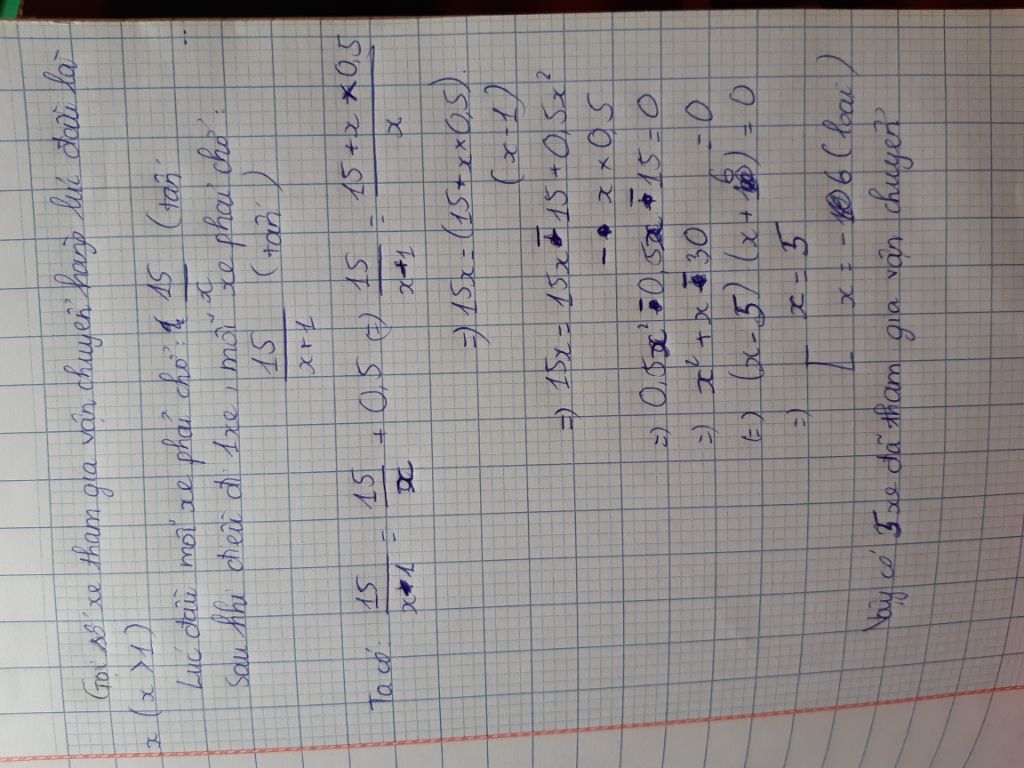 Gọi số xe tham gia vận chuyển hàng lúc đầu là
x (x > 1)
Lúc đầu mỗi xe phải chở: 15/x (tấn)
Sau khi điều đi 1 xe, mỗi xe phải chở:
15/(x+1) (tấn)
Ta có: 15/(x-1) = 15/x + 0,5 (=) 15/(x-1) = (15 + x × 0,5)/x
=) 15x = (15 + x × 0,5).
(x - 1)
=) 15x = 15x - 15 + 0,5x²
- x × 0,5
=) 0,5x² - 0,5x - 15 = 0
=) x² + x - 30 = 0
(=) (x - 5) (x + 6) = 0
=) [ x = 5
x = -6 (loại)
Vậy có 5 xe đã tham gia vận chuyển